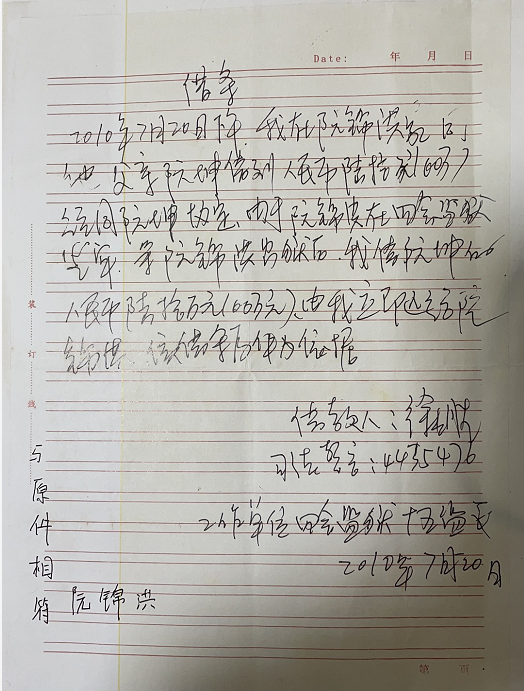 Date: 年 月 日
借条
2010年7月20日下午,我在阮锦洪家向
他父亲阮坤借到人民币陆拾万(60万)
经同阮坤协定,由于阮锦洪在四会监狱
坐牢,等阮锦洪出狱后,我借阮坤的
人民币陆拾万元(60万元),由我立即还给阮
锦洪,该借条为作为证据
借款人:徐
司法警官:4435476
工作单位四会监狱十五监区
2010年7月20日
与原件相符
阮锦洪
装订线
第 页